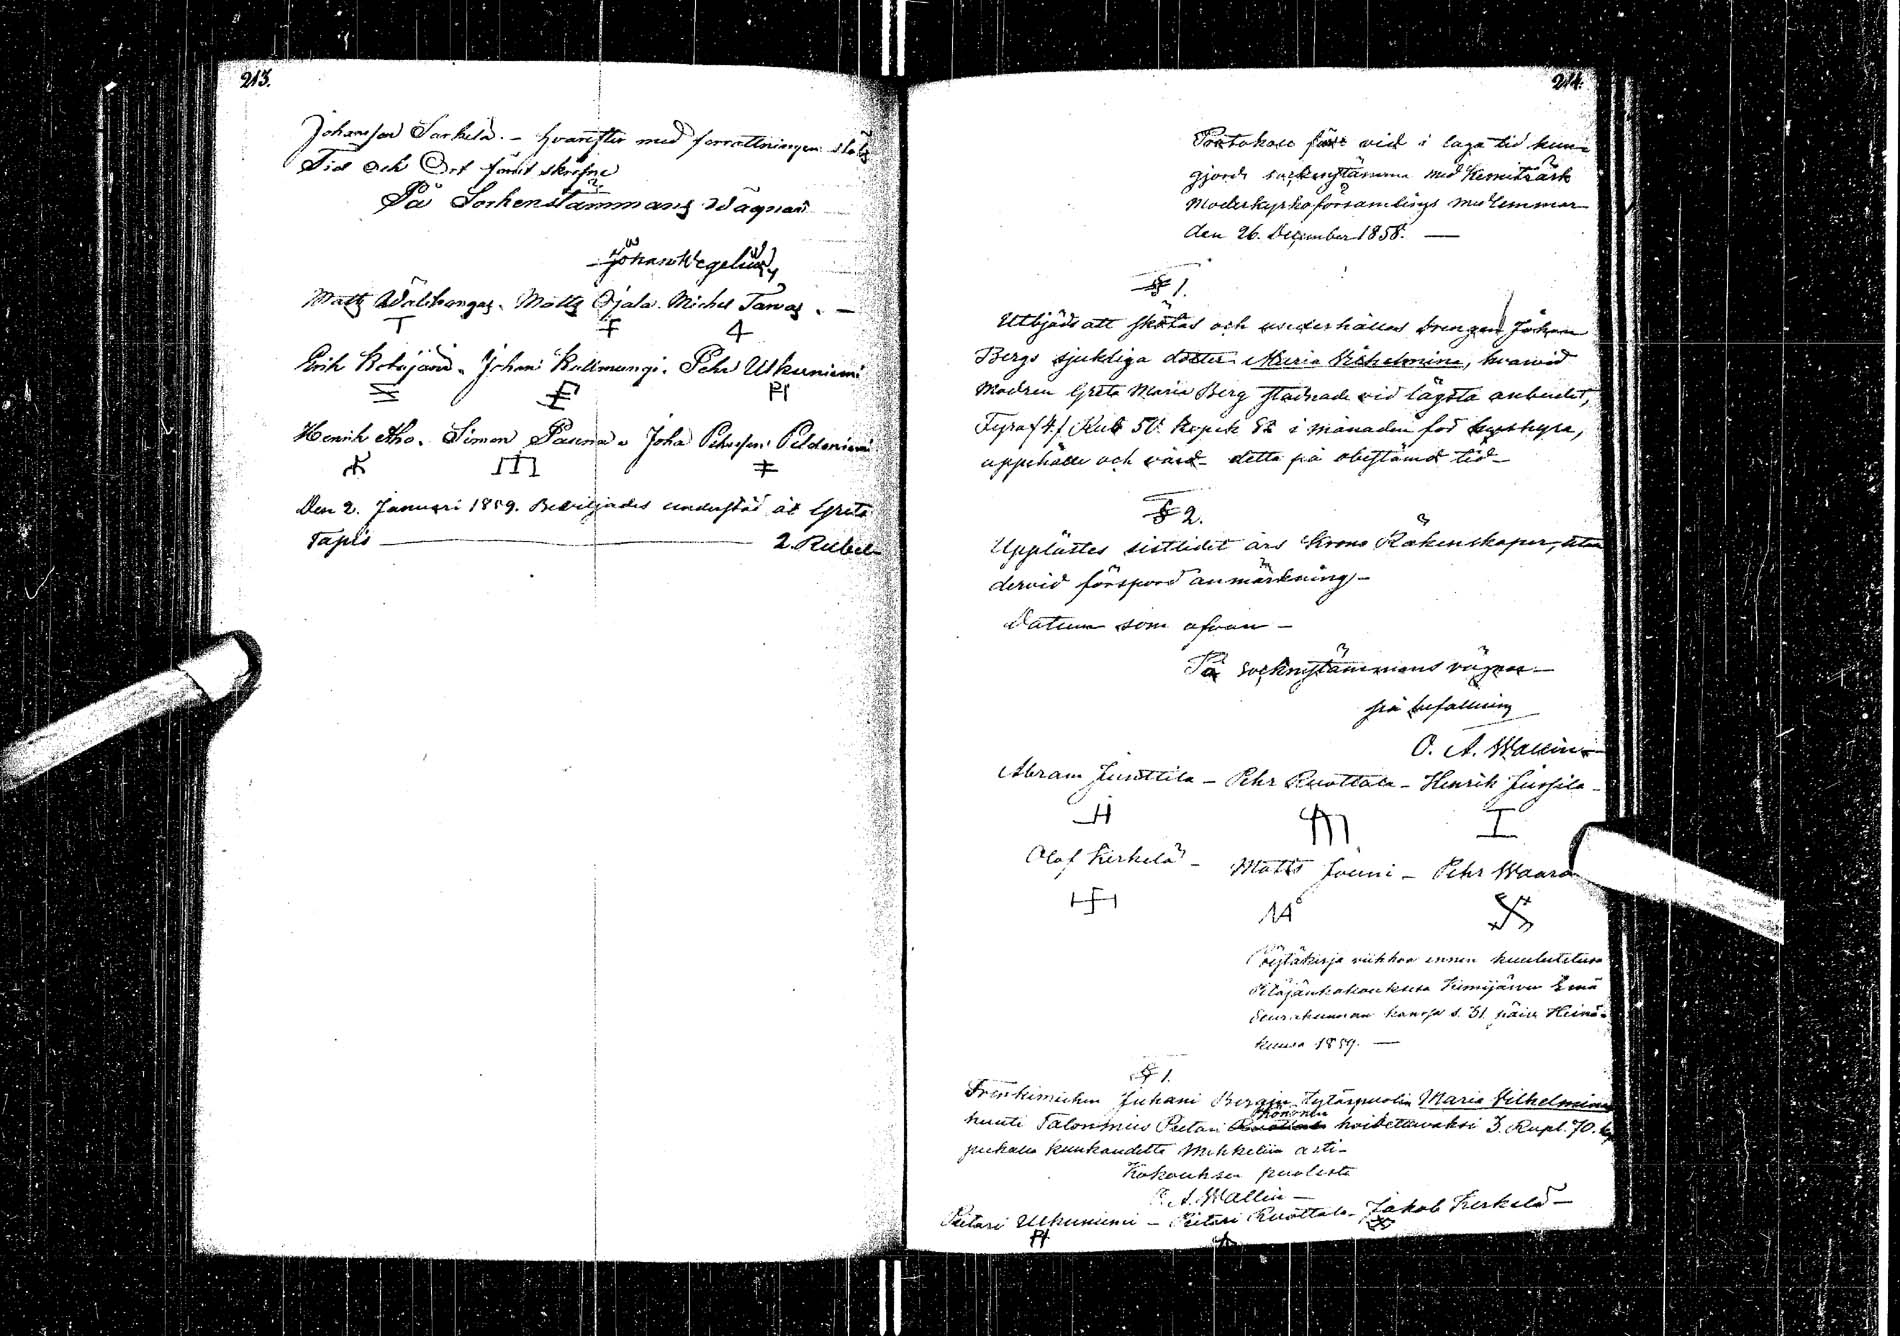 213.
Johansson Särkelä. – Hvarefter med förrättningen slöts
Tid och Ort förut skrefne
På Sockenstämmans Wägnar
Johan Wegelius
Matts Wälikangas. Matts Ojala. Michel Tarvas. –
Erik Kotajärvi. Johan Kallunngi. Pehr Ulkuniemi
Henrik Aho. Simon Pauna. Joha Pehrsson Peldoniemi
Den 2. Januari 1859. Beviljades understöd åt Greta
Tapio — 2. Rubel
214.
Protokoll fördt vid i laga tid kun-
gjorde sockenstämma med Kemiträsk
Moderkyrkoförsamlings medlemmar
den 26. December 1858. —
§ 1.
Utbjöds att skötas och underhållas Drengen Johan
Bergs sjukliga dotter Maria Vilhelmina, hvarvid
Modren Greta Maria Berg stadnade vid lägsta anbudet,
Fyra /4/ Rub 50. Kopek i månaden för hushyra,
uppehälle och vård – detta på obestämd tid –
§ 2.
Upplästes sistlidet års Krono Räkenskaper, utan
dervid förspord anmärkning –
Datum som ofvan –
På sockenstämmans vägnar –
på befallning
O. A. Wallin
Abram Junttila – Pehr Ruottala – Henrik Jussila –
Olof Kerkelä – Matts Jouni – Pehr Waara
Pöytäkirja viikkoa ennen kuulutetussa
Pitäjänkokouksessa Kemijärven Emä
Seurakunnan kanssa s. 31 päiv. Heinä-
kuusa 1859. —
§ 1.
Trenkimiehen Juhani Bergin tytärpuolen Maria Vilhelmina
huuti Talonmies Peetari Könönen hoidettavaksi 3. Rupl. 70. kop
puhalla kuukaudetta Mikkeliin asti –
Kokouksen puolesta
O. A. Wallin –
Peetari Ulkuniemi – Peetari Ruottala – Jakob Kerkelä –